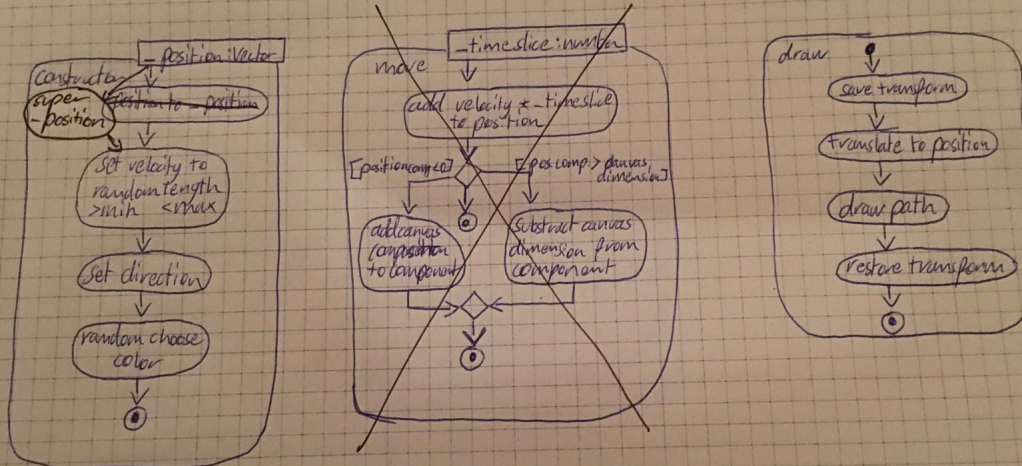 _position:Vector
Constructor
super
_position
position to _position
Set velocity to
random length
>min <max
set direction
random choose
color
_timeslice:number
move
add velocity * _timeslice
to position
[positioncomp<0]
[pos.comp.> canvas
dimension]
add canvas
to component
substract canvas
dimension from
component
draw
save transform
translate to position
draw path
restore transform